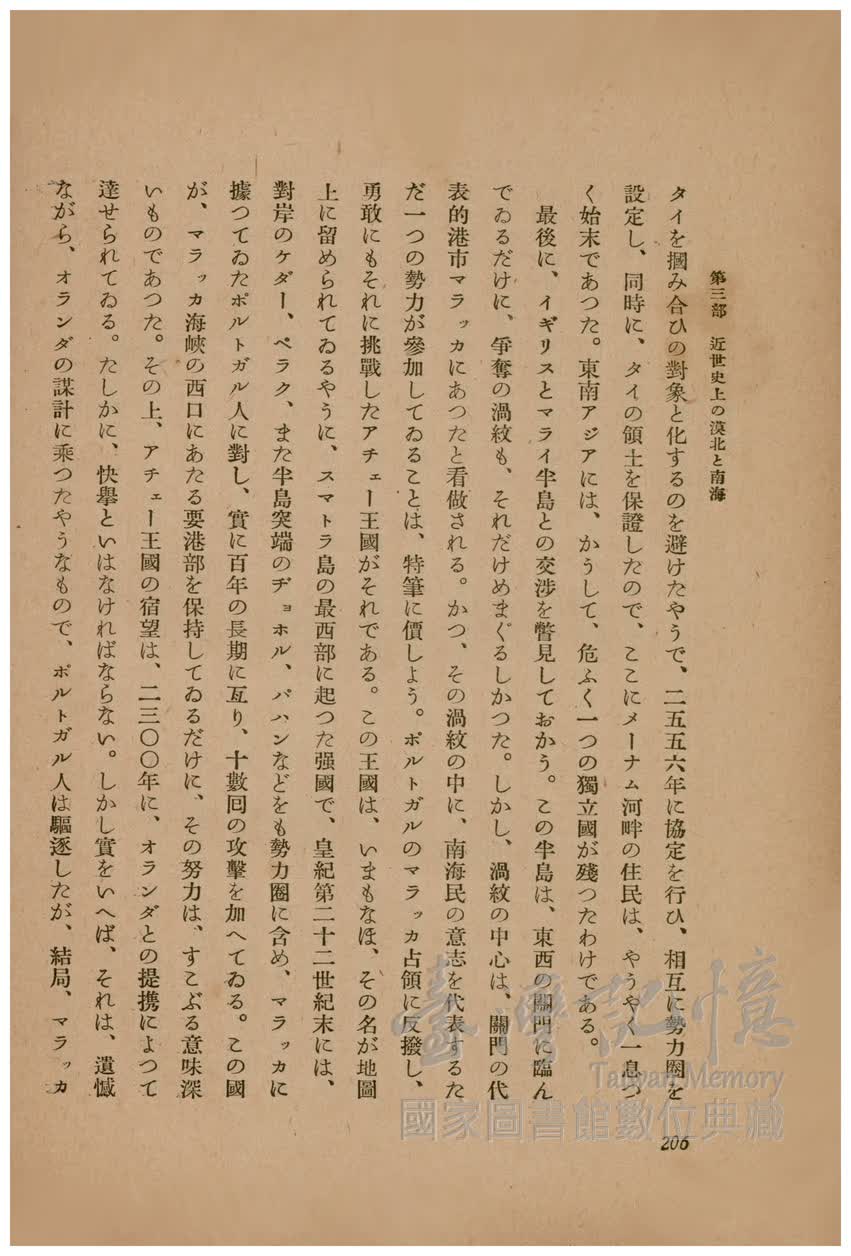 第三部　近世史上の漠北と南海
タイを摑み合ひの對象と化するのを避けたやうで、二五五六年に協定を行ひ、相互に勢力圈を
設定し、同時に、タイの領土を保證したので、ここにメーナム河畔の住民は、やうやく一息つ
く始末であつた。東南アジアには、かうして、危ふく一つの獨立國が殘つたわけである。
最後に、イギリスとマライ半島との交渉を瞥見しておかう。この半島は、東西の關門に臨ん
でゐるだけに、爭奪の渦紋も、それだけめまぐるしかつた。しかし、渦紋の中心は、關門の代
表的港市マラッカにあつたと看做される。かつ、その渦紋の中に、南海民の意志を代表するた
だ一つの勢力が參加してゐることは、特筆に價しよう。ポルトガルのマラッカ占領に反撥し、
勇敢にもそれに挑戰したアチェー王國がそれである。この王國は、いまもなほ、その名が地圖
上に留められてゐるやうに、スマトラ島の最西部に起つた强國で、皇紀第二十二世紀末には、
對岸のケダー、ペラク、また半島突端のヂョホル、パハンなどをも勢力圈に含め、マラッカに
據つてゐたポルトガル人に對し、實に百年の長期に亙り、十數回の攻擊を加へてゐる。この國
が、マラッカ海峽の西口にあたる要港部を保持してゐるだけに、その努力は、すこぶる意味深
いものであつた。その上、アチェー王國の宿望は、二三〇〇年に、オランダとの提携によつて
達せられてゐる。たしかに、快擧といはなければならない。しかし實をいへば、それは、遺憾
ながら、オランダの謀計に乘つたやうなもので、ポルトガル人は驅逐したが、結局、マラッカ
206
臺灣記憶
Taiwan Memory
國家圖書館數位典藏